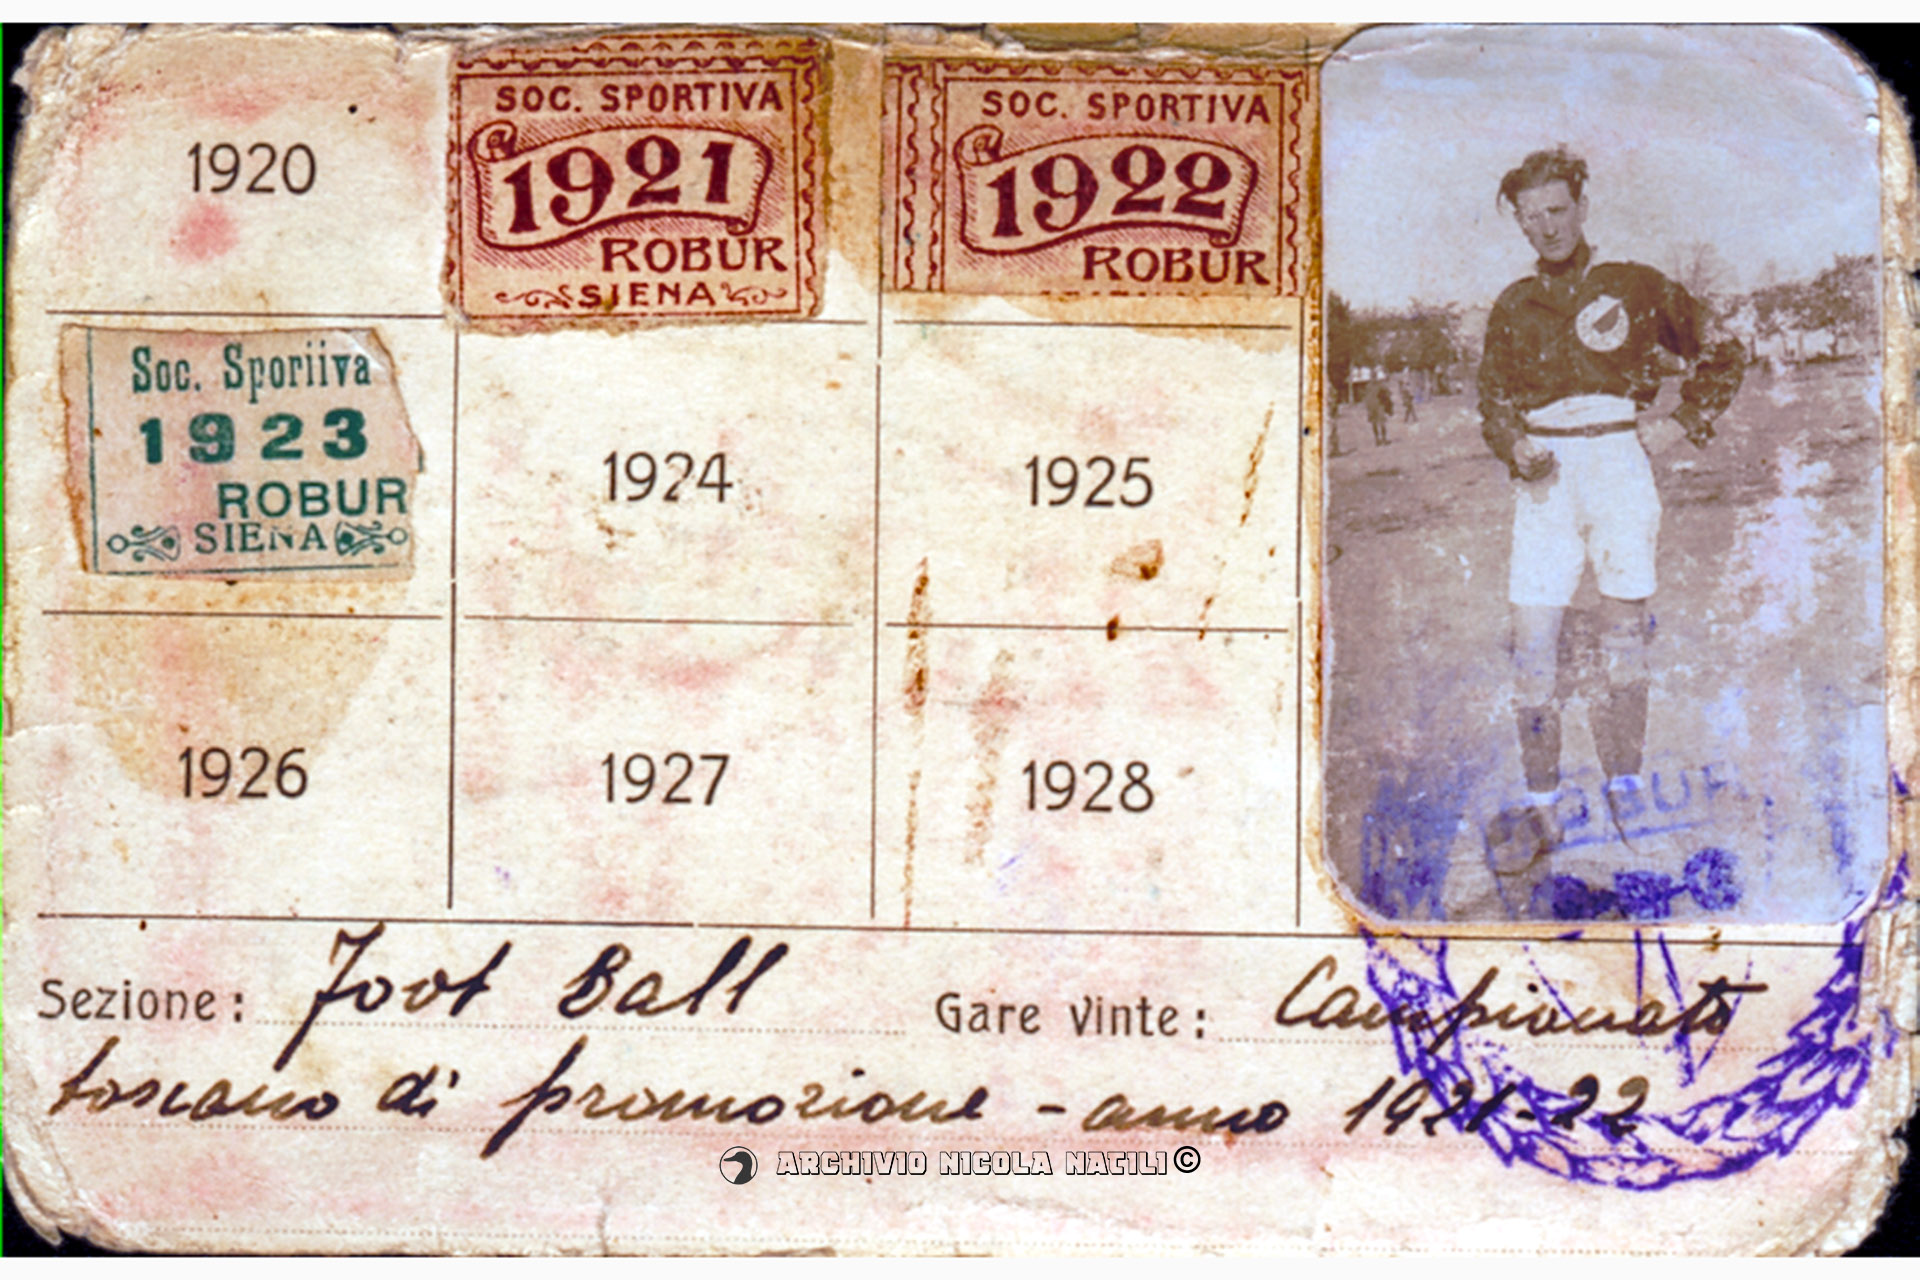 1920
SOC. SPORTIVA
1921
ROBUR
SIENA
SOC. SPORTIVA
1922
ROBUR
Soc. Sporiiva
1923
ROBUR
SIENA
1924
1925
1926
1927
1928
ROBUR
Sezione: Foot Ball Gare vinte: Campionato
toscano di promozione - anno 1921-22
ARCHIVIO NICOLA NATILI ©